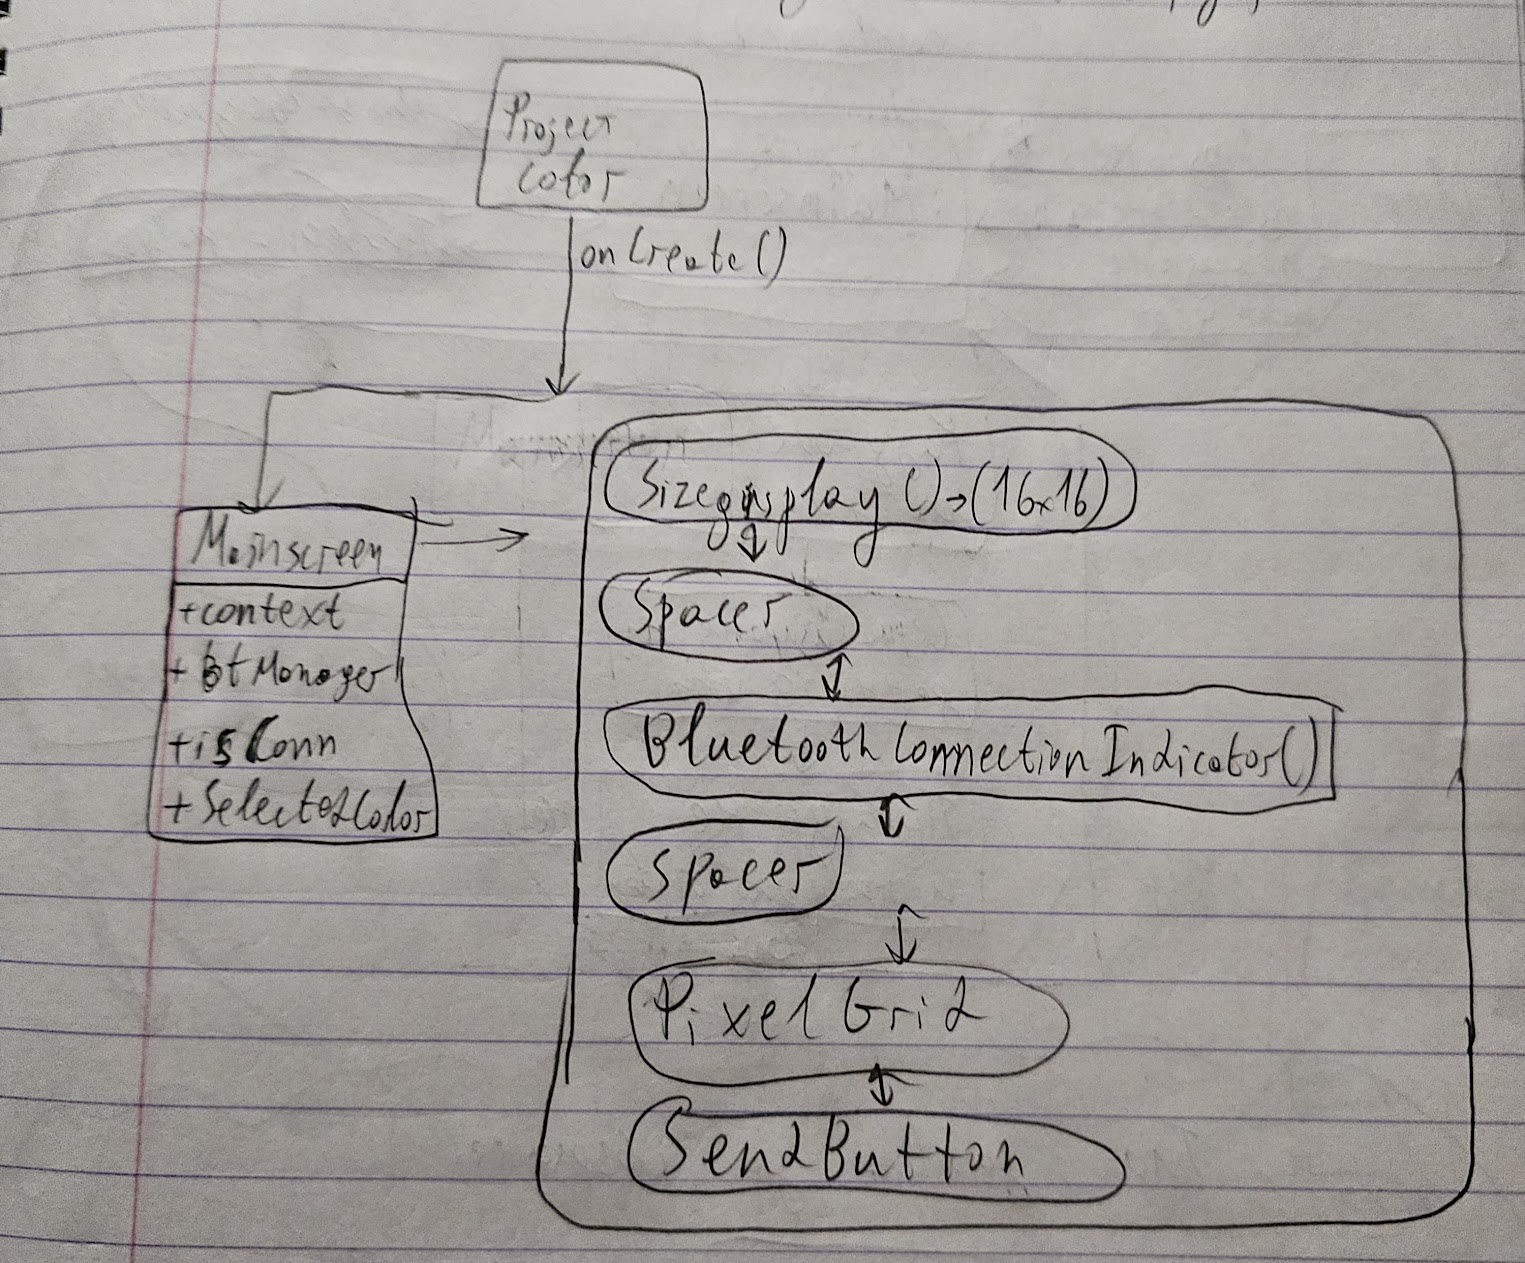 Project
Color
onCreate()
Mainscreen
+context
+ btManager
+isConn
+SelectedColor
Sizedisplay()→(16x16)
Spacer
BluetoothConnectionIndicator()
Spacer
PixelGrid
SendButton